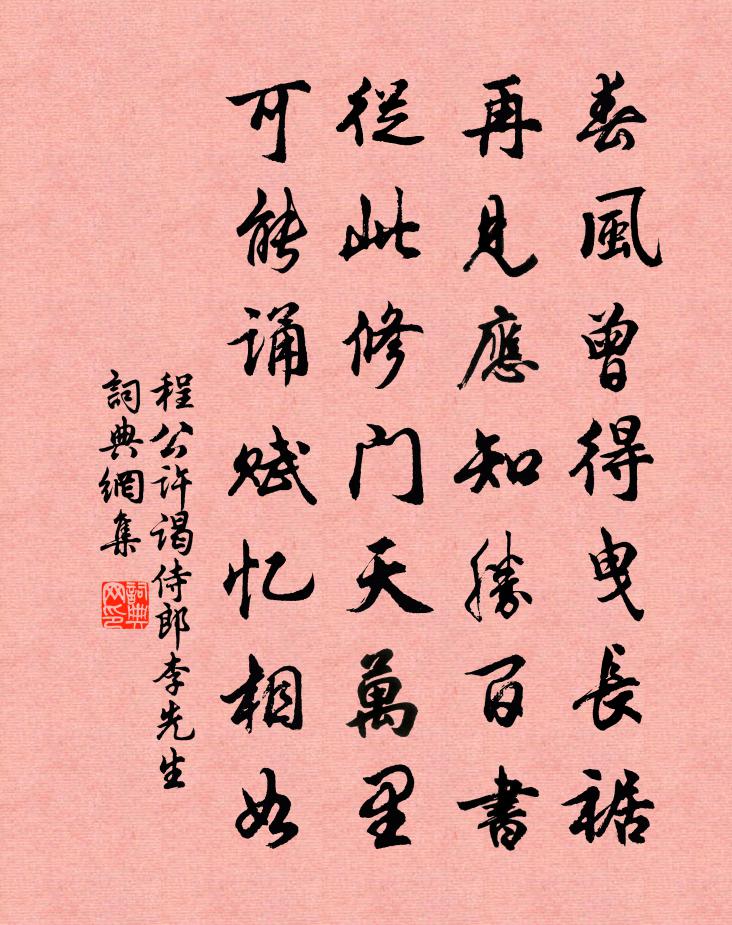 春風曾得曳長裾
再見應知勝百書
從此修门天萬里
可能誦赋忆相如
程公许謁侍郎李先生
詞典網集
詞典网印